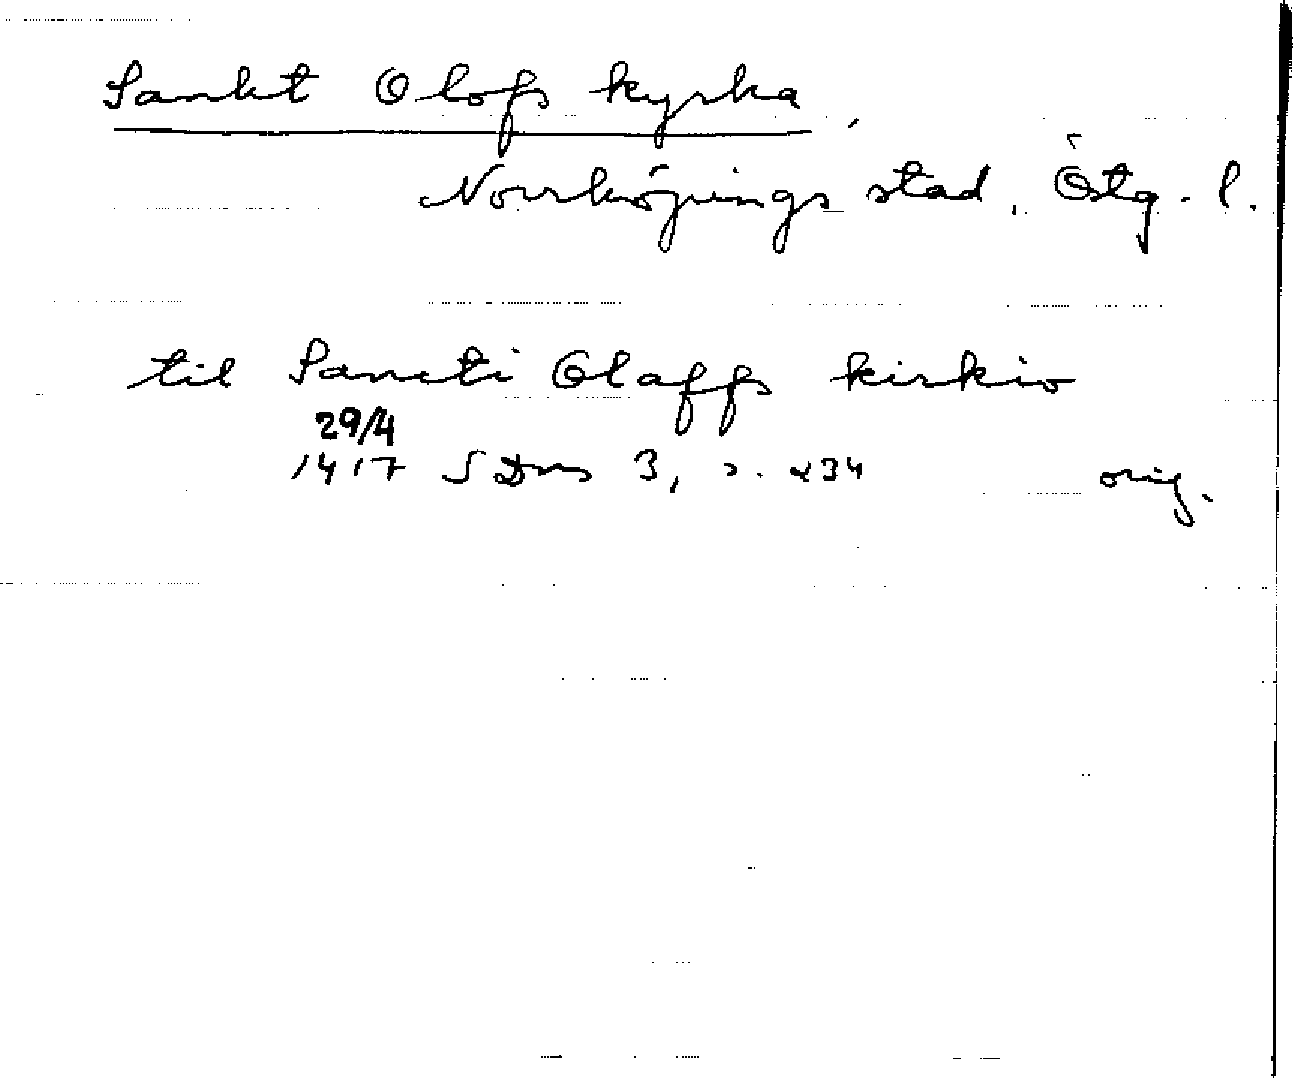 Sankt Olofs kyrka
Norrköpings stad, Östg. l.
til Sancti Olaffs kirkio
29/4
1417 SDns 3, s. 234 orig.